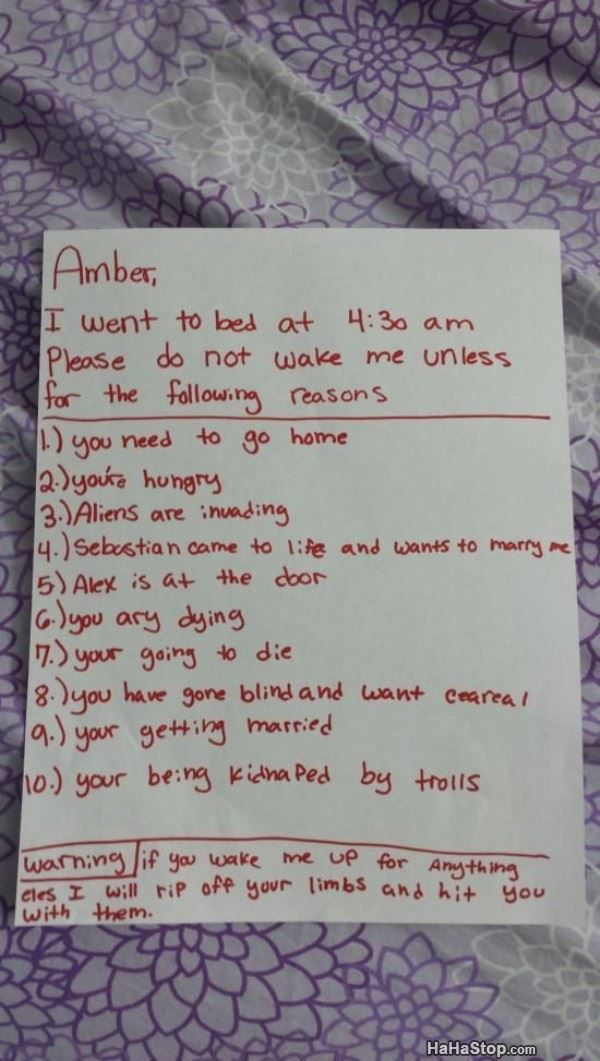 Amber,
I went to bed at 4:30 am
Please do not wake me unless
for the following reasons
1.) you need to go home
2.) you're hungry
3.) Aliens are invading
4.) Sebastian came to life and wants to marry me
5) Alex is at the door
6.) you ary dying
7.) your going to die
8.) you have gone blind and want ceareal
9.) your getting married
10.) your being kidnaPed by trolls
warning if you wake me up for Anything
eles I will rip off your limbs and hit you
with them.
HaHaStop.com